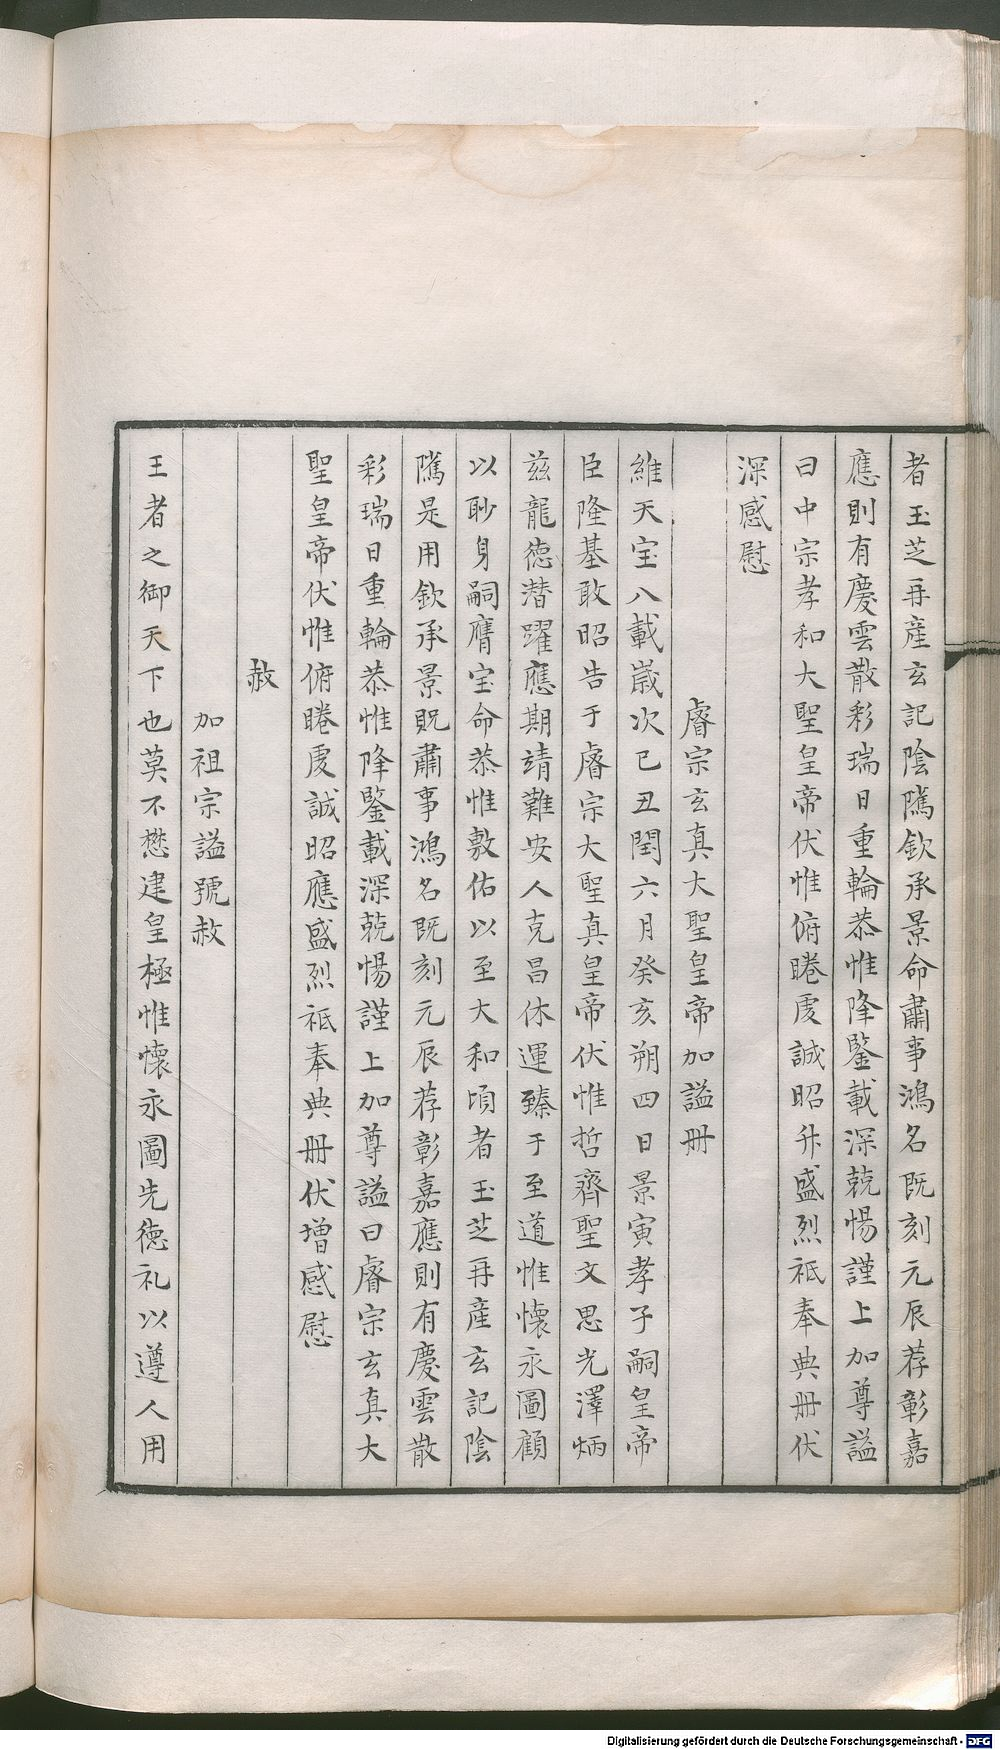 者玉芝再産玄記陰隲欽承景命肅事鴻名既刻元辰荐彰嘉
應則有慶雲散彩瑞日重輪恭惟降鑒載深兢惕謹上加尊謚
曰中宗孝和大聖皇帝伏惟俯睠虔誠昭升盛烈祗奉典冊伏
深感慰
睿宗玄真大聖皇帝加謚冊
維天宝八載嵗次己丑閏六月癸亥朔四日景寅孝子嗣皇帝
臣隆基敢昭告于睿宗大聖真皇帝伏惟哲齊聖文思光澤炳
兹龍徳潜躍應期靖難安人克昌休運臻于至道惟懷永圖顧
以眇身嗣膺宝命恭惟敷佑以至大和頃者玉芝再産玄記陰
隲是用欽承景貺肅事鴻名既刻元辰荐彰嘉應則有慶雲散
彩瑞日重輪恭惟降鑒載深兢惕謹上加尊謚曰睿宗玄真大
聖皇帝伏惟俯睠虔誠昭應盛烈祗奉典冊伏増感慰
赦
加祖宗謚號赦
王者之御天下也莫不懋建皇極惟懷永圖先徳礼以遵人用
Digitalisierung gefördert durch die Deutsche Forschungsgemeinschaft - DFG